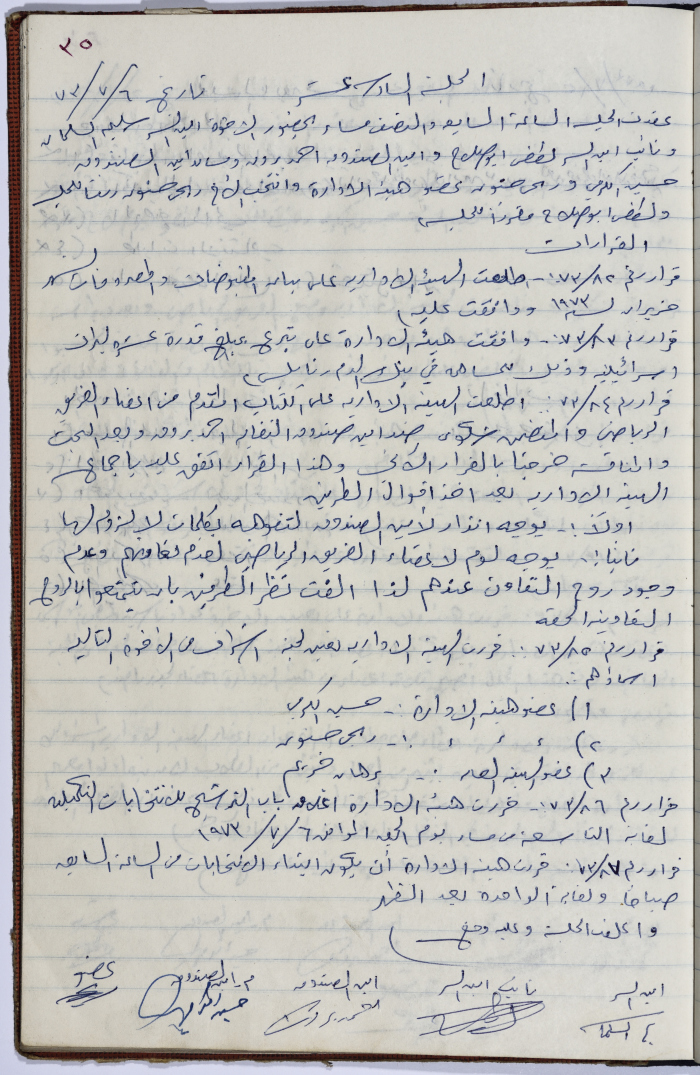 ٣٥
الجلسة السادسة عشر تاريخ ٧٣/٧/٦
عقدت الجلسة الساعة السابعة والنصف مساء بحضور الاخوة امين السر سليم السلمان
ونائب امين السر لطفي ابو صلاح وامين الصندوق احمد بدون ومساعد امين الصندوق
حسين الكردي و ربحي حسونه عضو هيئة الادارة وانتخب الأخ ربحي حسونه رئيسا للجلسة
ولطفي ابو صلاح مقررا للجلسة
القرارات
قرار رقم ٧٣/٨٢ :- اطلعت الهيئة الادارية على بيان المقبوضات والمصروفات لشهر
حزيران لسنة ١٩٧٣ ووافقت عليه
قرار رقم ٧٣/٨٣ :- وافقت هيئة الادارة على تبرع بمبلغ قدره عشرة ليرات
اسرائيلية وذلك في بنك الدم نابلس
قرار رقم ٧٣/٨٤ :- اطلعت الهيئة الادارية على الكتاب المقدم من اعضاء الفريق
الرياضي والمتضمن شكوى ضد امين صندوق النقابة احمد بدون وبعد البحث
والمناقشة خرجنا بالقرار التالي وهذا القرار اتفق عليه باجماع
الهيئة الادارية بعد اخذ اقوال الطرفين
اولاً :- يوجه انذار لأمين الصندوق لتفوهه بكلمات لا لزوم لها
ثانيا :- يوجه لوم لاعضاء الفريق الرياضي لعدم تفاهمهم وعدم
وجود روح التعاون عندهم لذا الفت نظر الطرفين بان يتمتعوا بالروح
التعاونية الحقه
قرار رقم ٧٣/٨٥ :- قررت الهيئة الادارية تعيين لجنة اشراف من الاخوة التالية
اسماؤهم :-
١) عضو هيئة الادارة :- حسين الكردي
٢) ، ، ، :- ربحي حسونه
٣) عضو الهيئة العامه :- برهان خريم
قرار رقم ٧٣/٨٦ :- قررت هيئة الادارة اغلاق باب الترشيح للانتخابات التكميلية
لغاية التاسعة من مساء يوم الجمعة الموافق ١٩٧٣/٧/٦
قرار رقم ٧٣/٨٧ :- قررت هيئة الادارة أن يكون ابتداء الانتخابات من الساعة السابعة
صباحا ولغاية الواحدة بعد الظهر
واغلقت الجلسة وعليه وقع
امين السر نائب امين السر امين الصندوق م. امين الصندوق عضو
حسين الكردي